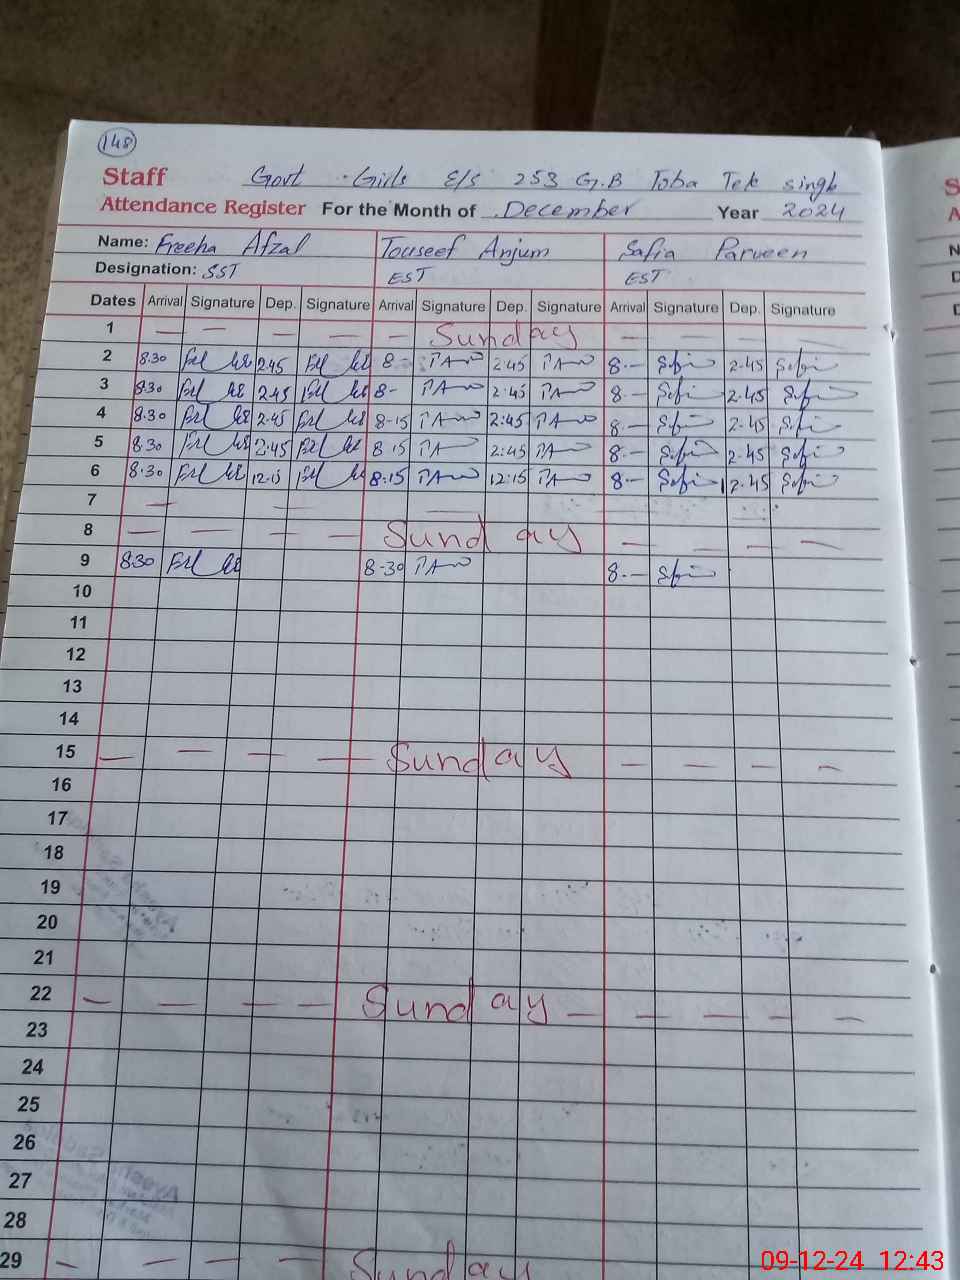 148
Staff Govt Girls E/S 253 G.B Toba Tek singh
Attendance Register For the Month of December Year 2024
Name: Freeha Afzal Touseef Anjum Safia Parveen
Designation: SST EST EST
Dates Arrival Signature Dep. Signature Arrival Signature Dep. Signature Arrival Signature Dep. Signature
1 — — — — — Sunday — — — —
2 8.30 2.45 8- 2:45 8.— 2.45
3 8.30 2.45 8- 2:45 8.— 2.45
4 8.30 2.45 8-15 2:45 8.— 2.45
5 8.30 2:45 8.15 2:45 8.— 2.45
6 8.30 12.15 8.15 12:15 8.— 12.45
7 — —
8 — — — — Sunday — — — —
9 8.30 8-30 8.—
10
11
12
13
14
15 — — — — Sunday — — — —
16
17
18
19
20
21
22 — — — — Sunday — — — — —
23
24
25
26
27
28
29 — — — — Sunday
09-12-24 12:43